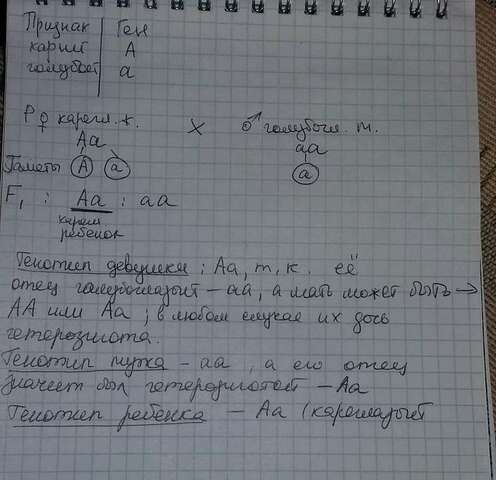 Признак | Ген
карий | А
голубой | а
Р ♀ карегл. ж. × ♂ голубогл. м.
Аа аа
Гаметы А а а
F₁ : Аа : аа
карегл
ребенок
Генотип девушки : Аа, т.к. её
отец голубоглазый – аа, а мать может быть →
АА или Аа ; в любом случае их дочь
гетерозигота.
Генотип мужа – аа, а его отец
значит был гетерозиготой – Аа
Генотип ребенка – Аа (кареглазый